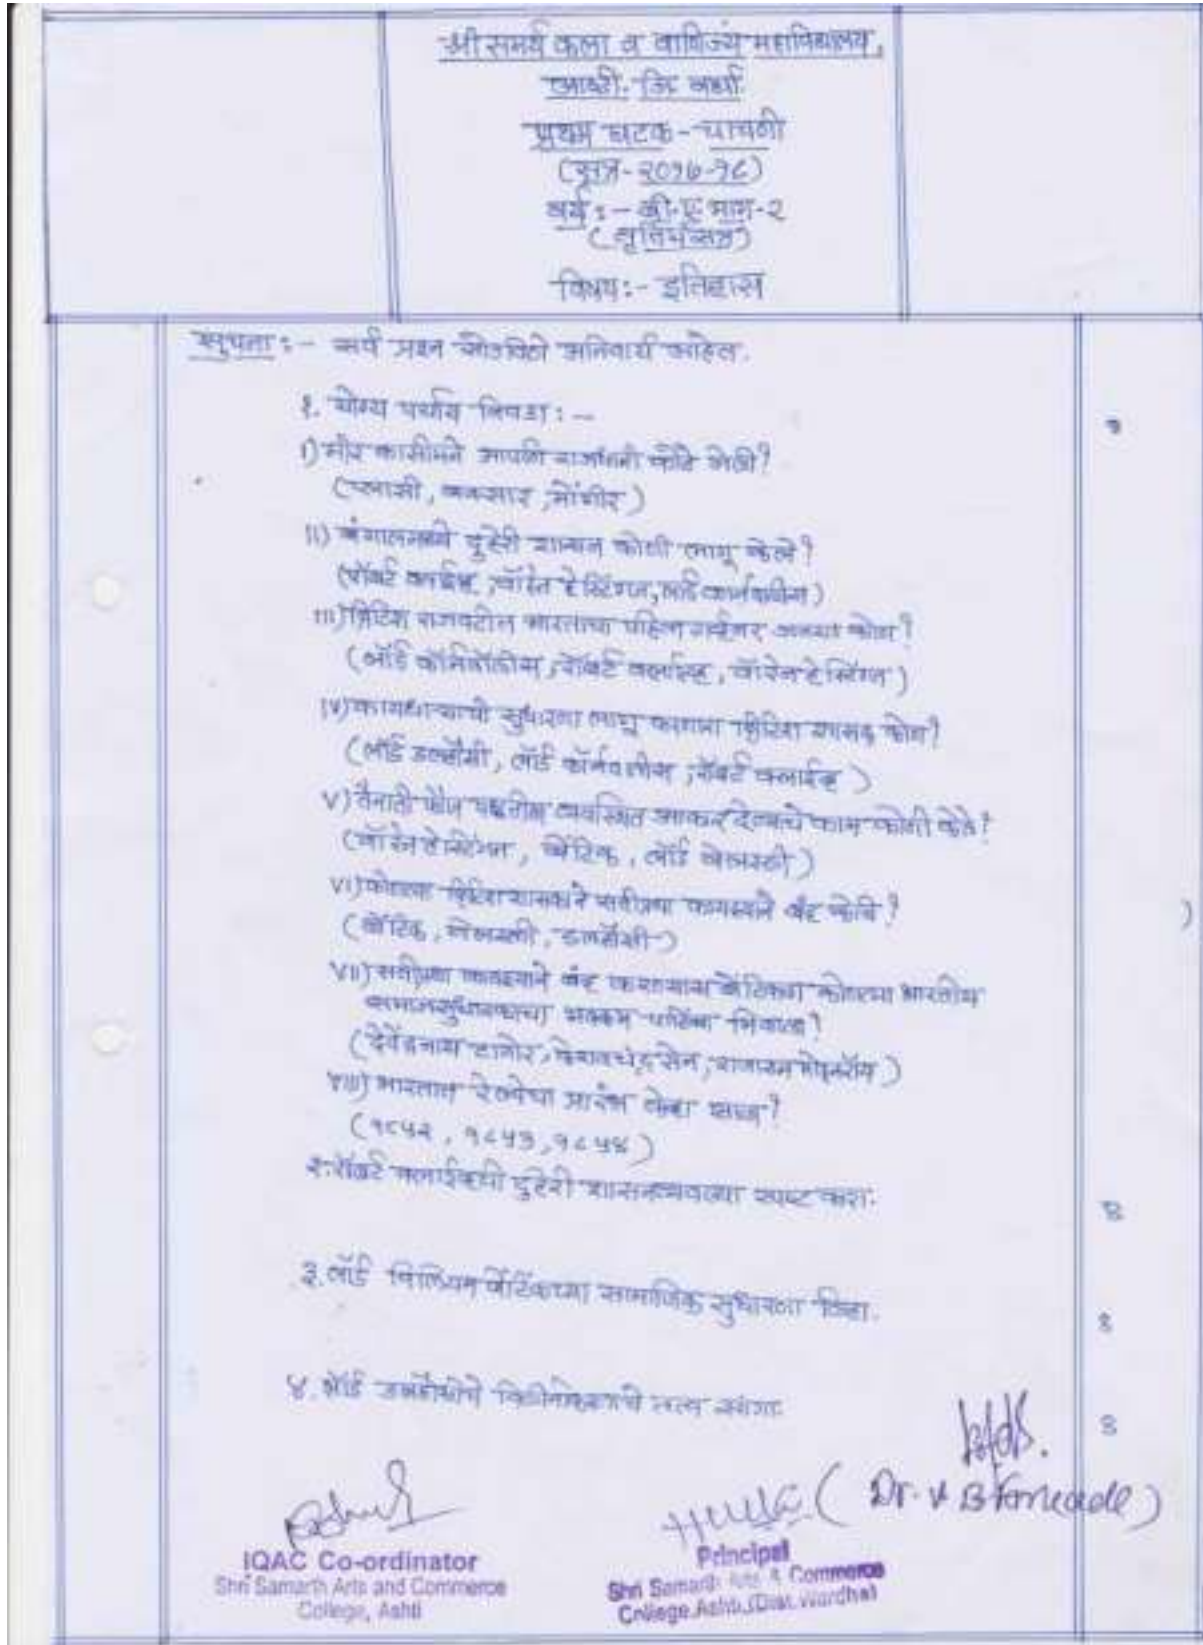 श्री समर्थ कला व वाणिज्य महाविद्यालय,
आष्टी. जि. वर्धा
प्रथम घटक - चाचणी
(सत्र - २०१७-१८)
वर्ग :- बी.ए. भाग-२
(तृतीय सत्र)
विषय:- इतिहास
सुचना :- सर्व प्रश्न सोडविणे अनिवार्य आहेत.
१. योग्य पर्याय निवडा :-
I) मीर कासीमने आपली राजधानी कोठे नेली?
(प्लासी, बक्सार, मोंगीर)
II) बंगालमध्ये दुहेरी शासन कोणी लागू केले?
(रॉबर्ट क्लाईव्ह, वॉरेन हेस्टिंग्ज, लॉर्ड कार्नवालीस)
III) ब्रिटिश राजवटीत भारताचा पहिला गव्हर्नर जनरल कोण?
(लॉर्ड कॉर्नवॉलीस, रॉबर्ट क्लाईव्ह, वॉरेन हेस्टिंग्ज)
IV) कायमधाऱ्याची सुधारणा लागू करणारा ब्रिटिश शासक कोण?
(लॉर्ड डलहौसी, लॉर्ड कॉर्नवलीस, रॉबर्ट क्लाईव्ह)
V) तैनाती फौज पद्धतीस व्यवस्थित आकार देण्याचे काम कोणी केले?
(वॉरेन हेस्टिंग्ज, बेंटिक, लॉर्ड वेलस्ली)
VI) कोणत्या ब्रिटिश शासकाने सतीप्रथा कायद्याने बंद केली?
(बेंटिक, वेलस्ली, डलहौसी)
VII) सतीप्रथा कायद्याने बंद करण्यास बेंटिकला कोणत्या भारतीय
समाजसुधारकाचा भक्कम पाठिंबा मिळाला?
(देवेंद्रनाथ टागोर, केशवचंद्र सेन, राजाराम मोहनरॉय)
VIII) भारतात रेल्वेचा प्रारंभ केव्हा झाला?
(१८५२, १८५३, १८५४)
२. रॉबर्ट क्लाईव्हची दुहेरी शासनव्यवस्था स्पष्ट करा. ४
३. लॉर्ड विलियम बेंटिंकच्या सामाजिक सुधारणा लिहा. ४
४. लॉर्ड डलहौसीचे विलीनीकरणाचे तत्व सांगा. ४
(Dr. V B
IQAC Co-ordinator
Shri Samarth Arts and Commerce
College, Ashti
Principal
Shri Samarth Arts & Commerce
College Ashti (Dist. Wardha)